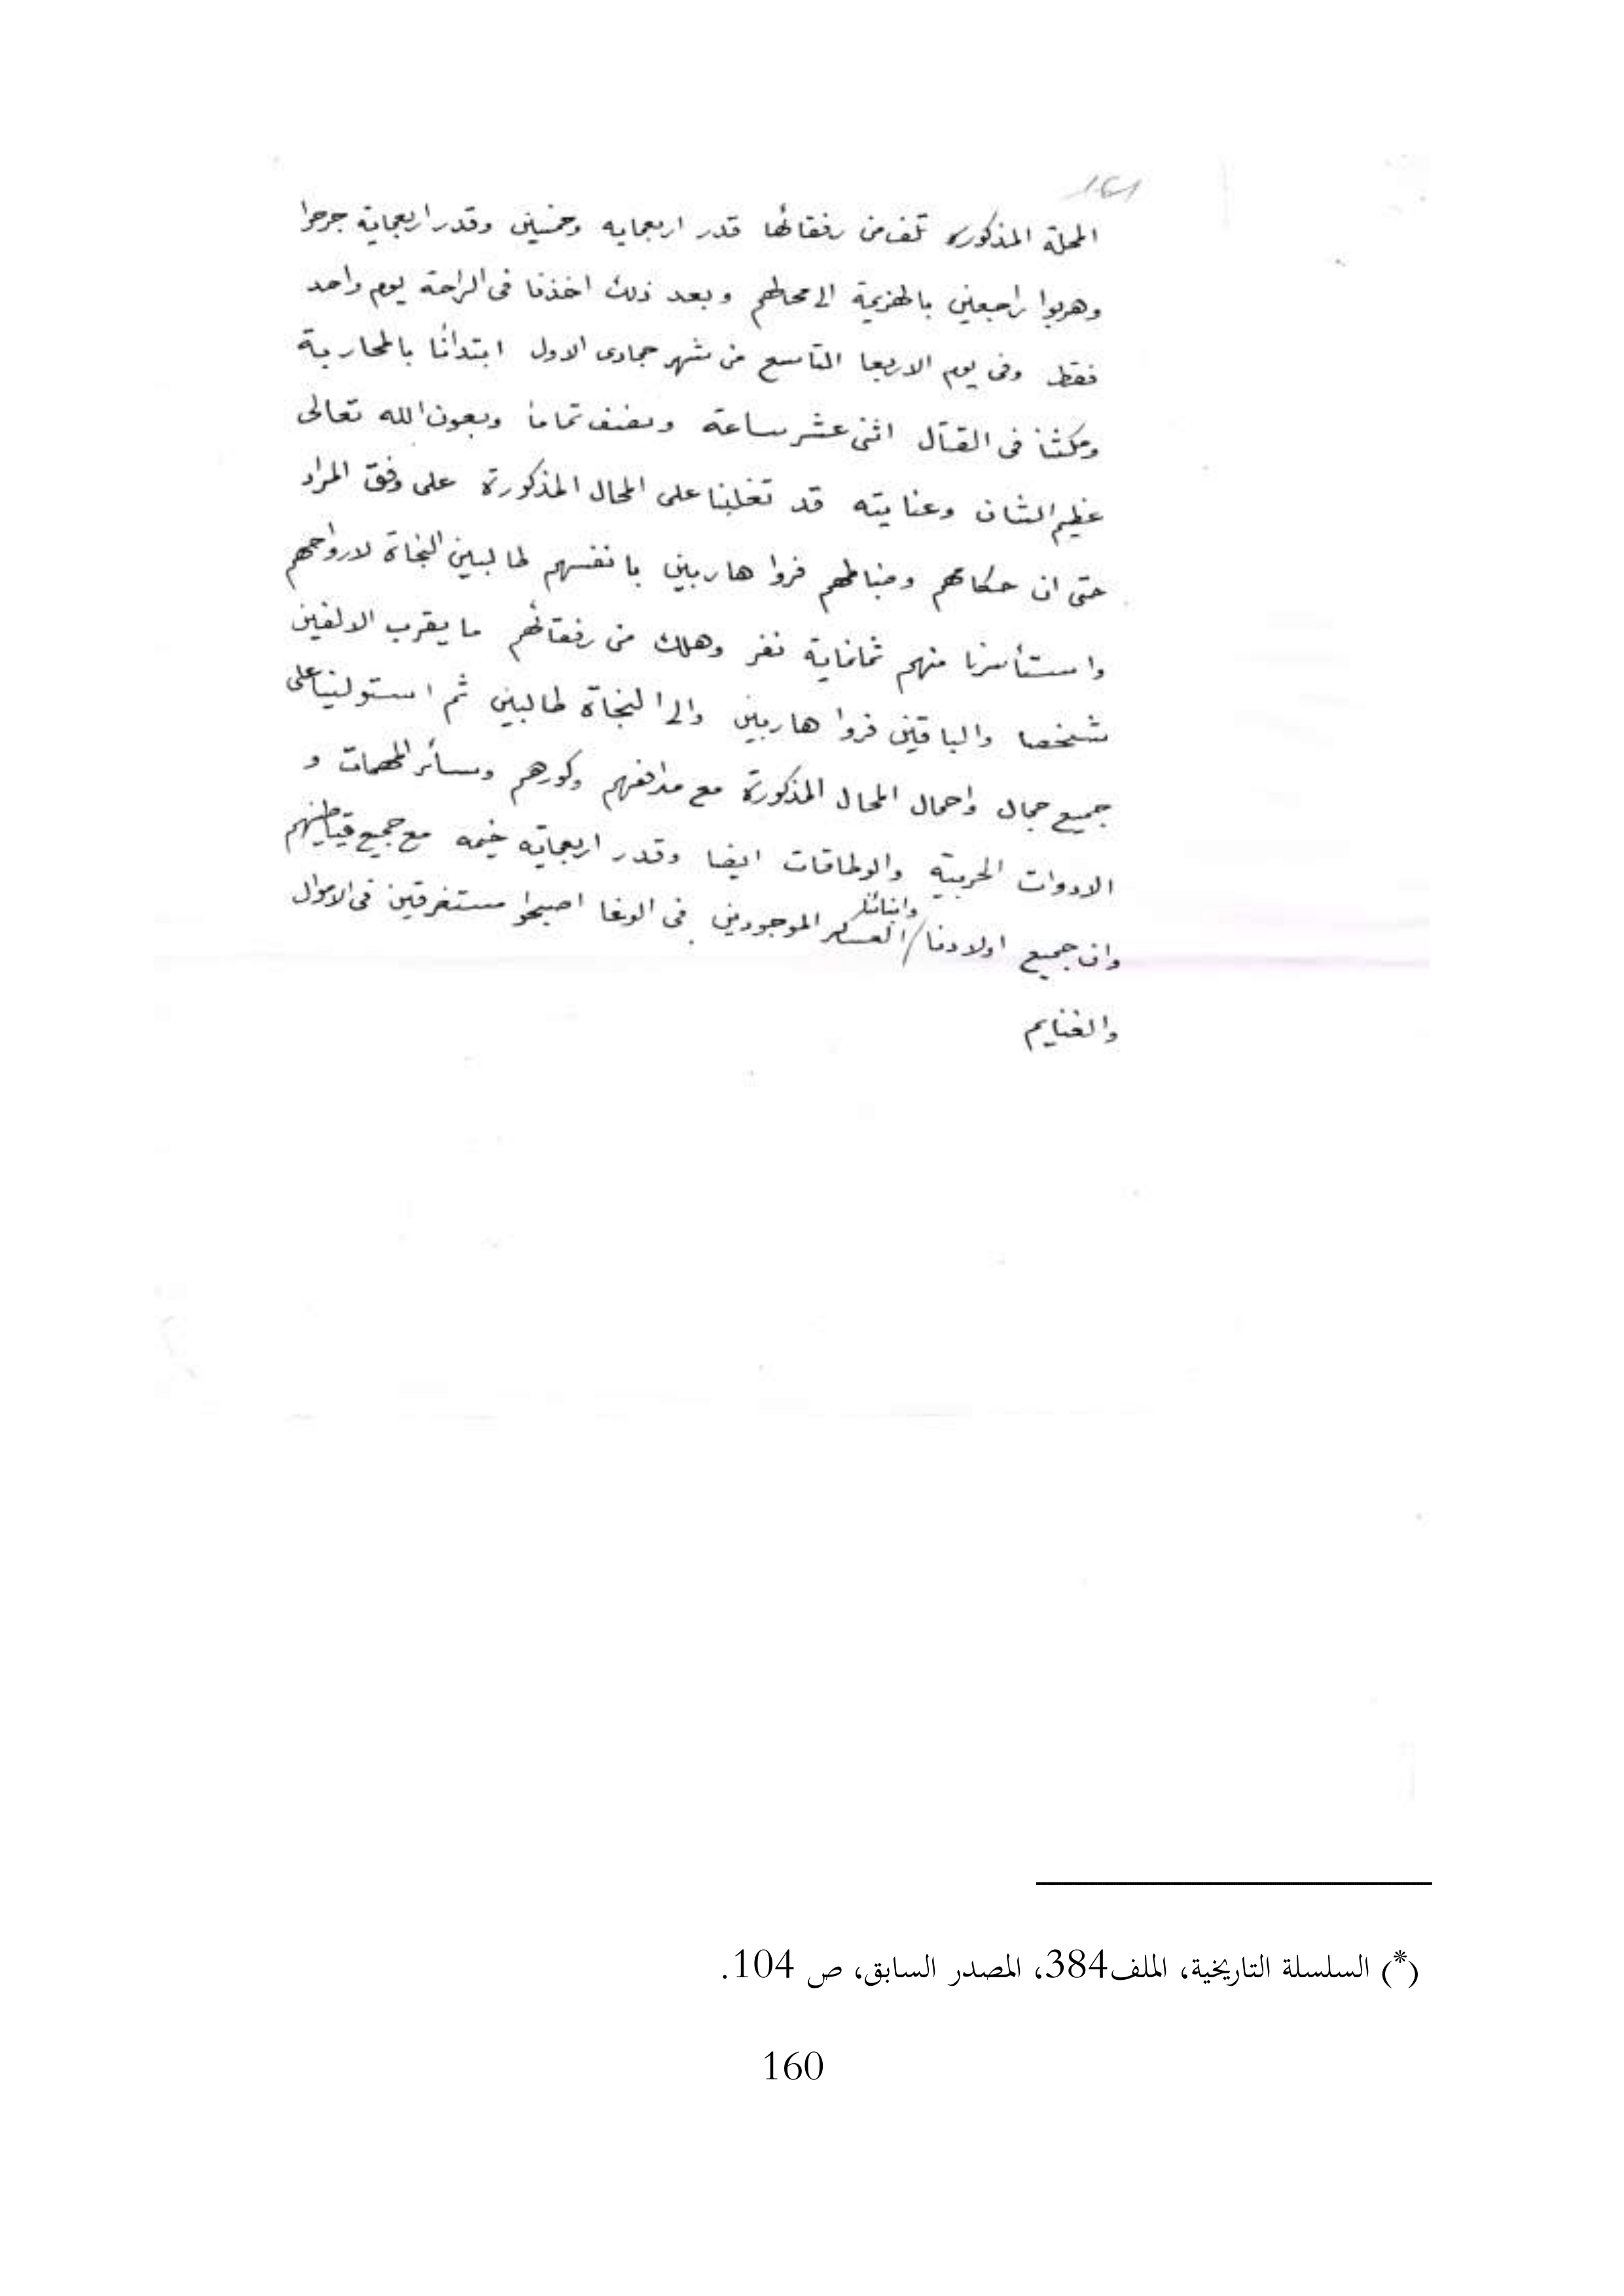 المحلة المذكوره تلف من رفقائها قدر اربعمايه وخمسين وقدر اربعماية جرحوا
وهربوا راجعين بالهزيمة الى محالهم وبعد ذلك اخذنا فى الراحة يوم واحد
فقط وفى يوم الاربعا التاسع من شهر جمادى الاول ابتدأنا بالمحاربة
ومكثنا فى القتال اثنى عشر ساعة ونصف تماما وبعون الله تعالى
عظيم الشان وعنايته قد تغلبنا على المحال المذكورة على وفق المراد
حتى ان حكامهم وضباطهم فروا هاربين بانفسهم طالبين النجاة لارواحهم
واستأسرنا منهم ثمانماية نفر وهلك من رفقائهم ما يقرب الالفين
شخصا والباقين فروا هاربين والى النجاة طالبين ثم استولينا على
جميع جمال واحمال المحال المذكورة مع مدافعهم وكورهم وسائر المهمات و
الادوات الحربية والوطاقات ايضا وقدر اربعماية خيمه مع جميع قياطينهم
وان جميع اولادنا / وابنائنا العسكر الموجودين فى الوغا اصبحوا مستغرقين فى الاموال
والغنايم
(*) السلسلة التاريخية، الملف384، المصدر السابق، ص 104.
160